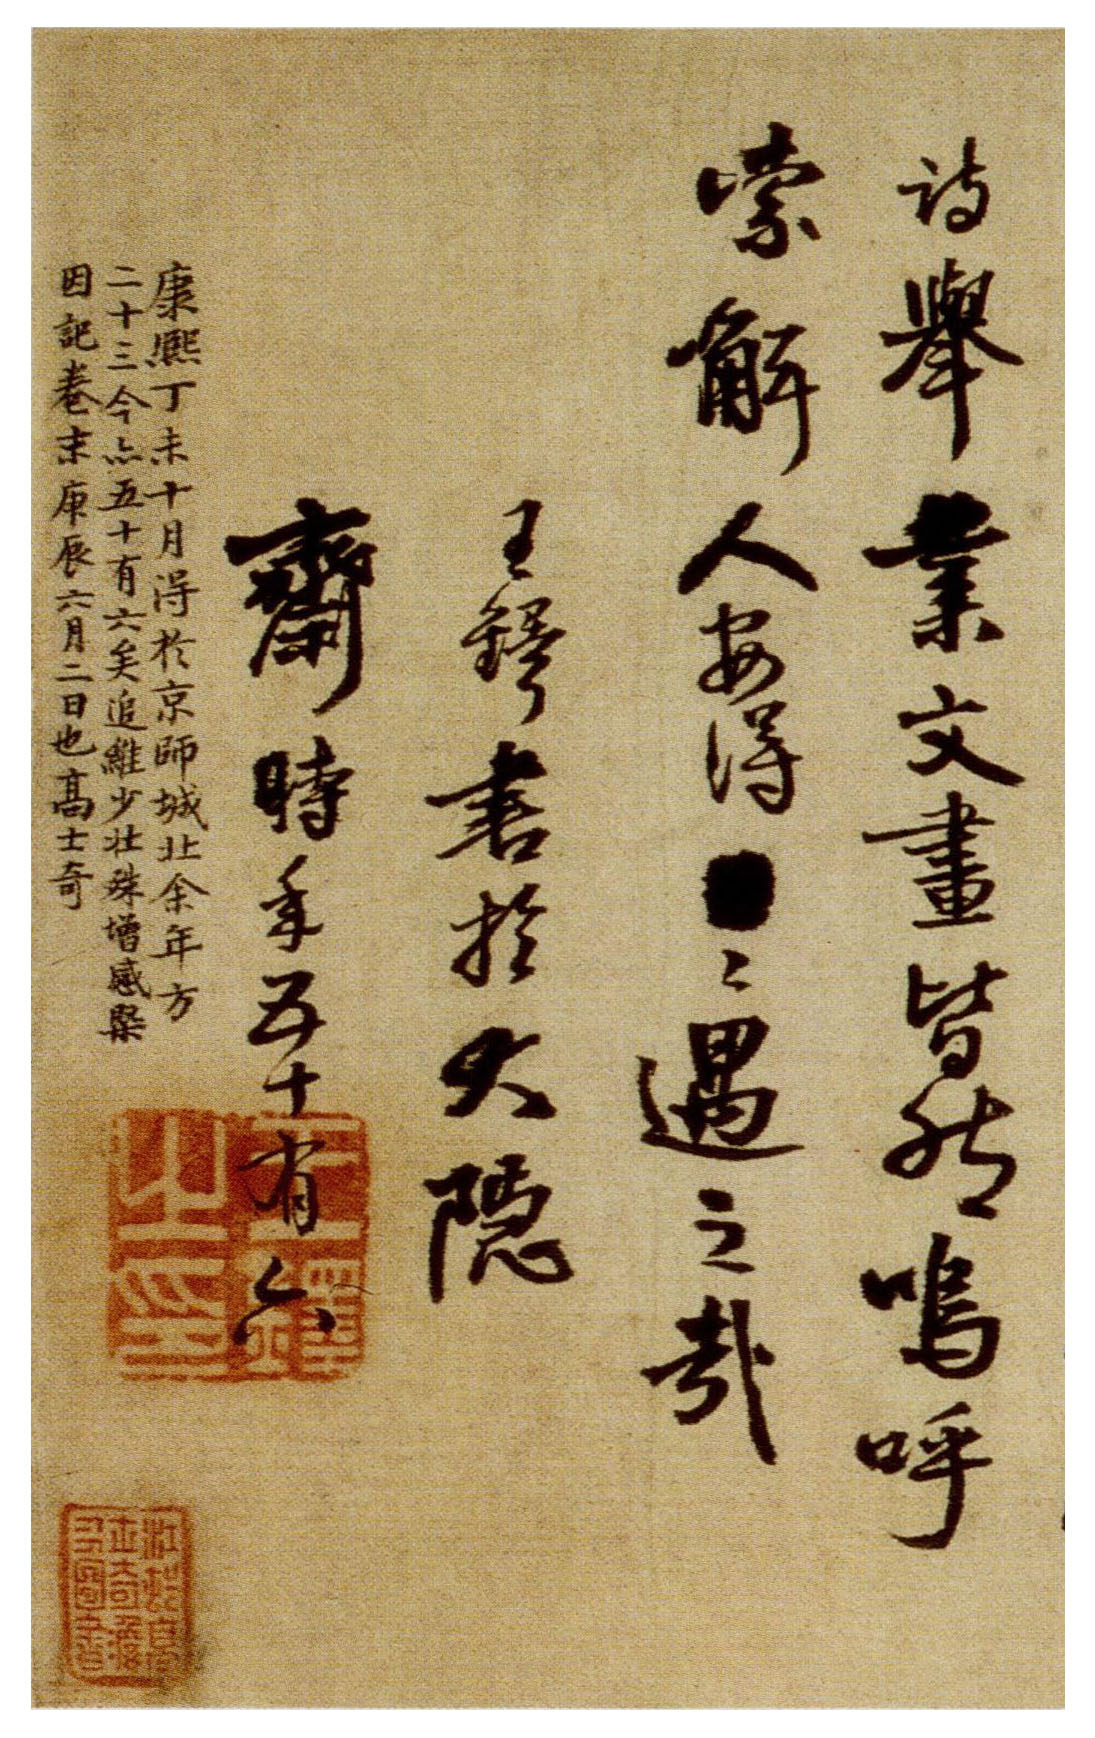 詩舉業文畫皆然嗚呼
索解人安得■〻遇之哉
王鐸書於大隱
齋時年五十有六
康熙丁未十月得於京師城北余年方
二十三今亦五十有六矣追維少壯殊增感槩
因記卷末庚辰六月二日也高士奇
王鐸
之印
江邨高
士奇
圖書